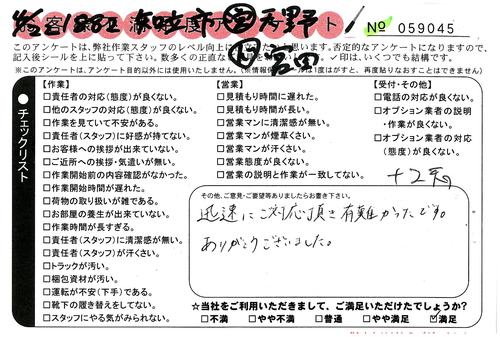 東日立市 営 秀野
お客様満足度アンケート No 059045
宮田
このアンケートは、弊社作業スタッフのレベル向上に
思います。否定的なアンケートになりますので、
記入後シールを上に貼って下さい。数多くの正直な
✓印は、いくつでも結構です。
※このアンケートは、アンケート目的以外には使用いたしません。(※情報保
ールは1度はがすと、再度貼りなおすことはできません)
●チェックリスト
【作業】
□責任者の対応(態度)が良くない。
□他のスタッフの対応(態度)が良くない。
□作業を見ていて不安がある。
□責任者(スタッフ)に好感が持てない。
□お客様への挨拶が出来ていない。
□ご近所への挨拶・気遣いが無い。
□作業開始前の内容確認がなかった。
□作業開始時間が遅れた。
□荷物の取り扱いが雑である。
□お部屋の養生が出来ていない。
□作業時間が長すぎる。
□責任者(スタッフ)に清潔感が無い。
□責任者(スタッフ)が汗くさい。
□トラックが汚い。
□梱包資材が汚い。
□運転が不安(下手)である。
□靴下の履き替えをしてない。
□スタッフにやる気がみられない。
【営業】
□見積もり時間に遅れた。
□見積もり時間が長い。
□営業マンに清潔感が無い。
□営業マンが煙草くさい。
□営業マンが汗くさい。
□営業態度が良くない。
□営業の説明と作業が一致してない。
【受付・その他】
□電話の対応が良くない。
□オプション業者の説明
・作業が良くない。
□オプション業者の対応
(態度)が良くない。
+2点
その他、ご意見・ご要望等ありましたらお書き下さい。
迅速にご対応頂き有難かったです。
ありがとうございました。
☆当社をご利用いただきまして、ご満足いただけたでしょうか?
□不満 □やや不満 □普通 □やや満足 ☑満足